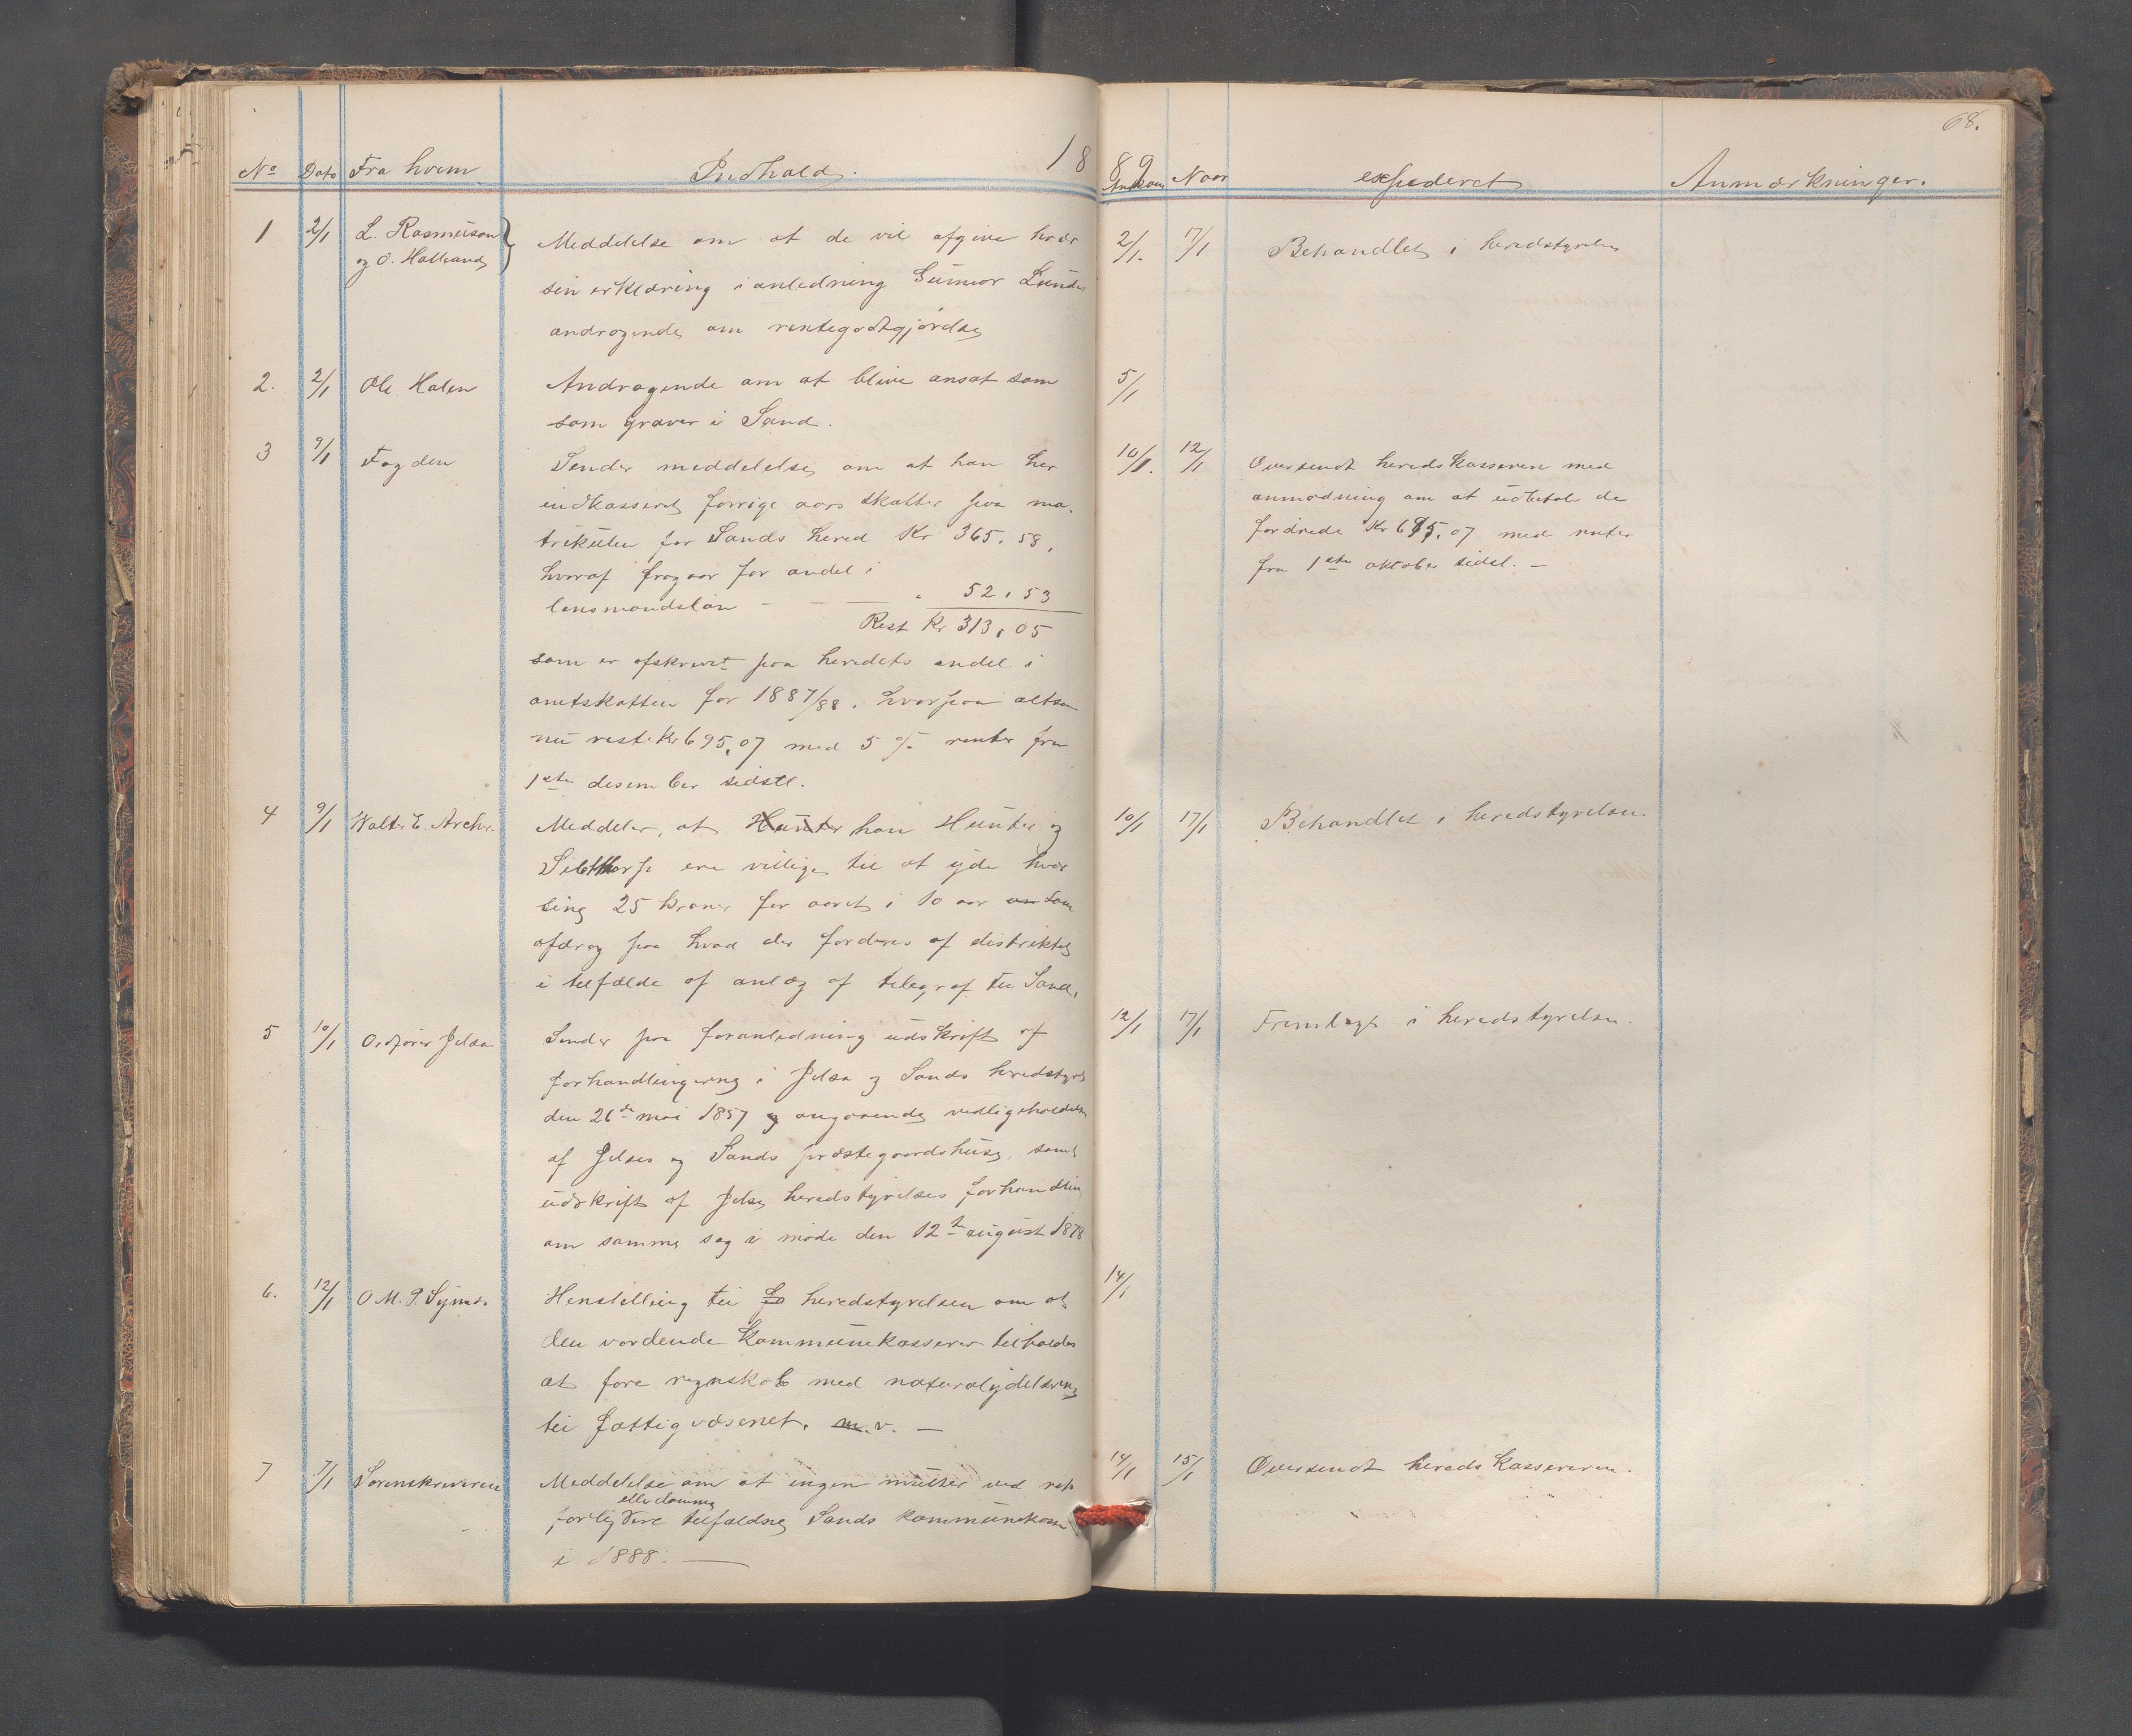 68.
1889
No Dato Fra hvem Indhold. Ankom Naar expederet Anmærkninger.
1 2/1 L. Rasmuson
og O. Hatland
Meddelelse om at de vil afgive hver
sin erklæring i anledning Gunnar Lunde
andragende om rentegodtgjørelse
2/1. 17/1 Behandlet i heredstyrelsen
2. 2/1 Ole Halen Andragende om at blive ansat som
som graver i Sand.
5/1
3 9/1 Fogden Sender meddelelse om at han her
indkasseret forrige aars skatter paa ma-
trikulen for Sands hered Kr 365.58,
hvoraf fragaar for andel i
lensmandsløn - - — " 52,53
Rest Kr 313,05
som er afskrevet paa heredets andel i
amtskatten for 1887/88. hvorpaa altsaa
nu reste Kr 695,07 med 5 % renter fra
1ste desember sidstl.
10/1. 12/1 Oversendt heredskasseren med
anmodning om at udbetale de
fordrede Kr 695.07 med renter
fra 1ste oktober sidstl. —
4 9/1 Walter E. Archer. Meddeler, at Hunter han Hunter og
Sibthorp ere villige til at yde hver
sing 25 kroner for aaret i 10 aar om som
afdrag paa hvad der fordres af distriktet
i tilfælde af anlæg af telegraf til Sand.
10/1 17/1 Behandlet i heredstyrelsen
5 10/1 Ordfører Jelsa Sender paa foranledning udskrift af
forhandlingerne i Jelsa og Sands heredstyre
den 26de mai 1857 og angaaende vedligeholdelse
af Jelses og Sands præstegaardshuse, samt
udskrift af Jelse heredstyrelses forhandling
om samme sag i møde den 12te august 1878
12/1 17/1 Fremlagt i heredstyrelsen.
6. 12/1 O M. P. Henstilling til heredstyrelsen om at
den vordende kommunekasserer tilholdes
at føre regnskab med naturalydelserne
til fattigvæsenet. m.v. —
14/1
7 7/1 Sorenskriveren Meddelelse om at ingen mulker ved ret
eller domme
forlig ere tilfaldne Sands kommunekasse
i 1888. —
14/1 15/1 Oversendt heredskassereren.